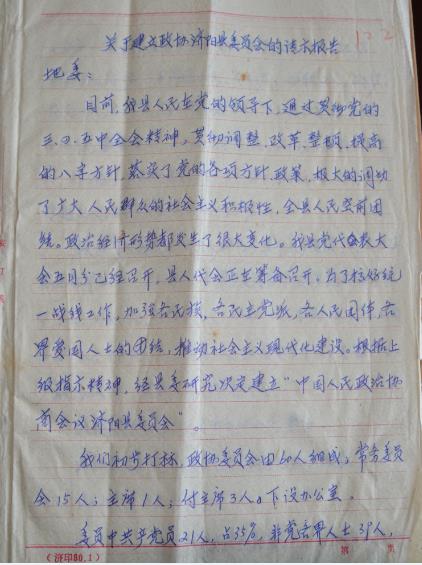 关于建立政协济阳县委员会的请示报告
132
地委：
目前，经县人民在党的领导下，通过贯彻党的
三、四、五中全会精神，贯彻调整、改革、整顿、提高
的八字方针，落实了党的各项方针、政策，极大的调动
了广大人民群众的社会主义积极性，全县人民空前团
结。政治经济形势都发生了很大变化。我县党代会表大
会五月分已经召开，县人代会正在筹备召开。为了搞好统
一战线工作，加强各民族、各民主党派、各人民团体、各
界爱国人士的团结，推动社会主义现代化建设。根据上
级指示精神，经县委研究决定建立“中国人民政治协
商会议济阳县委员会”。
我们初步打标，政协委员会由60人组成；常务委员
会15人；主席1人；付主席3人。下设办公室。
委员中共产党员21人，占35%，非党各界人士39人，
（济印80.1）
第 页